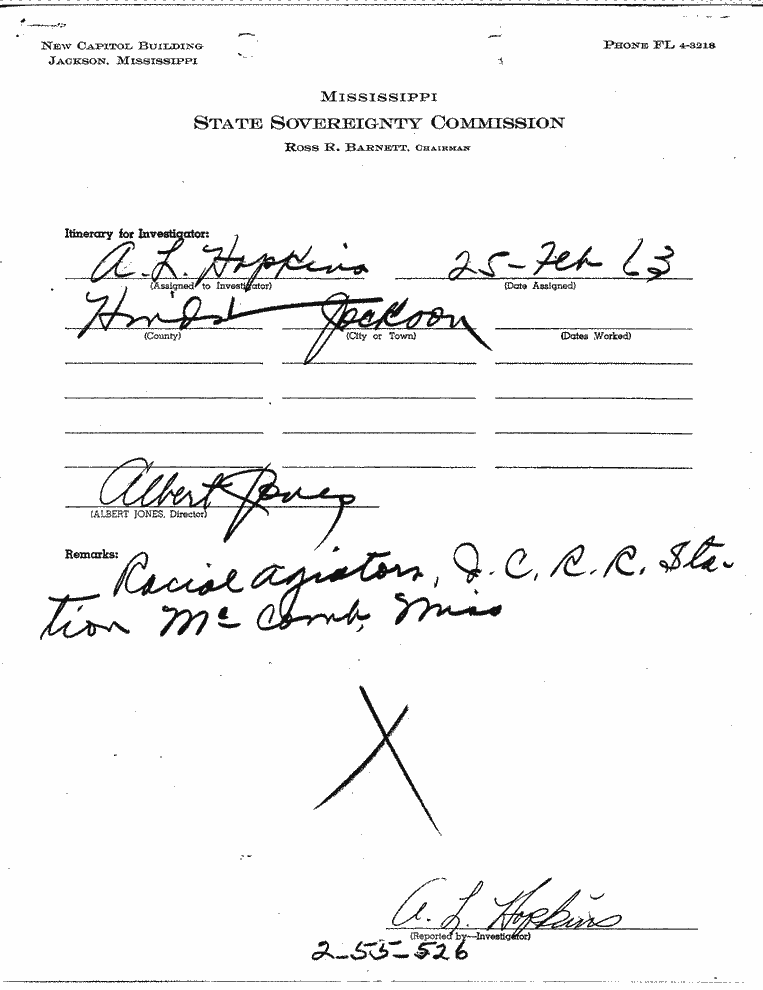 NEW CAPITOL BUILDING
JACKSON, MISSISSIPPI
PHONE FL 4-3218
MISSISSIPPI
STATE SOVEREIGNTY COMMISSION
ROSS R. BARNETT, CHAIRMAN
Itinerary for Investigator:
A. L. Hopkins 25-Feb 63
(Assigned to Investigator) (Date Assigned)
Hinds Jackson
(County) (City or Town) (Dates Worked)
Albert Jones
(ALBERT JONES, Director)
Remarks: Racial agiators, I. C. R. R. Sta-
tion Mc Comb, Miss
X
A. L. Hopkins
(Reported by—Investigator)
2-55-526